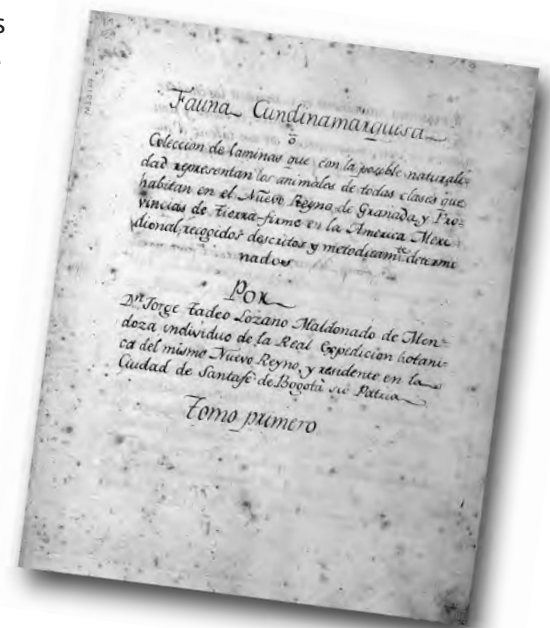 s
Fauna Cundinamarquesa
ō
Coleccion de laminas que con la posible naturali-
dad representan los animales de todas clases que
habitan en el Nuevo Reyno de Granada, y Pro-
vincias de tierra-firme en la America Meri-
dional, recogidos descritos y metodicamte. determi
nados
Por
Dn. Jorge Tadeo Lozano Maldonado de Men-
doza individuo de la Real Expedicion botani-
ca del mismo Nuevo Reyno, y residente en la
Ciudad de Santafe de Bogotá su Patria
Tomo primero